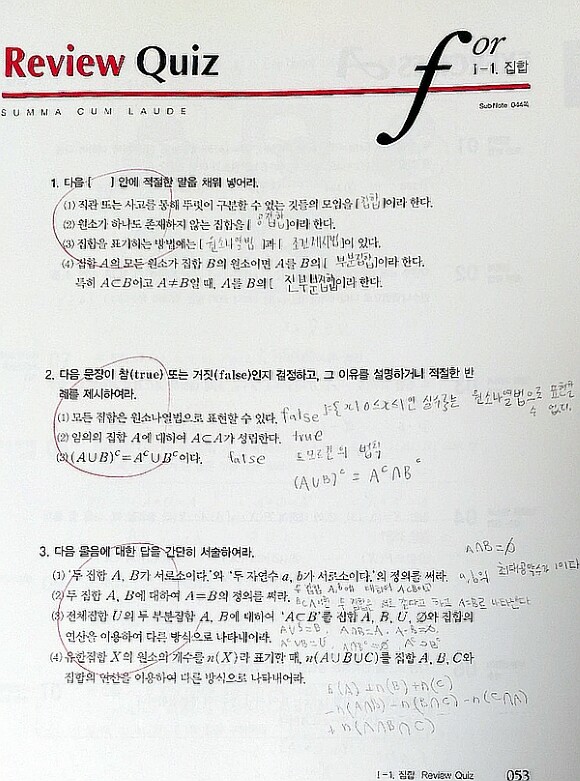 Review Quiz
for
I-1. 집합
SUMMA CUM LAUDE
SubNote 044쪽
1. 다음 [ ] 안에 적절한 말을 채워 넣어라.
(1) 직관 또는 사고를 통해 뚜렷이 구분할 수 있는 것들의 모임을 [집합]이라 한다.
(2) 원소가 하나도 존재하지 않는 집합을 [공집합]이라 한다.
(3) 집합을 표기하는 방법에는 [원소나열법]과 [조건제시법]이 있다.
(4) 집합 A의 모든 원소가 집합 B의 원소이면 A를 B의 [부분집합]이라 한다.
특히 A⊂B이고 A≠B일 때, A를 B의 [진부분집합]이라 한다.
2. 다음 문장이 참(true) 또는 거짓(false)인지 결정하고, 그 이유를 설명하거나 적절한 반
례를 제시하여라.
(1) 모든 집합은 원소나열법으로 표현할 수 있다. false {x|0≤x≤1인 실수}는 원소나열법으로 표현할
수 없다.
(2) 임의의 집합 A에 대하여 A⊂A가 성립한다. true
(3) (A∪B)ᶜ=Aᶜ∪Bᶜ이다. false 드모르간의 법칙
(A∪B)ᶜ = Aᶜ∩Bᶜ
3. 다음 물음에 대한 답을 간단히 서술하여라.
A∩B=∅
(1) '두 집합 A, B가 서로소이다.'와 '두 자연수 a, b가 서로소이다.'의 정의를 써라. a,b의 최대공약수가 1이다
(2) 두 집합 A, B에 대하여 A=B의 정의를 써라. 두 집합 A,B에 대하여 A⊂B이고
B⊂A이면 두 집합은 서로 같다고 하고 A=B로 나타낸다
(3) 전체집합 U의 두 부분집합 A, B에 대하여 'A⊂B'를 집합 A, B, U, ∅와 집합의
연산을 이용하여 다른 방식으로 나타내어라.
A∪B=B, A∩B=A, A-B=∅
Aᶜ∪B=U, A∩Bᶜ=∅, Aᶜ⊃Bᶜ
(4) 유한집합 X의 원소의 개수를 n(X)라 표기할 때, n(A∪B∪C)를 집합 A, B, C와
집합의 연산을 이용하여 다른 방식으로 나타내어라.
n(A)+n(B)+n(C)
-n(A∩B)-n(B∩C)-n(C∩A)
+n(A∩B∩C)
I-1. 집합 Review Quiz 053